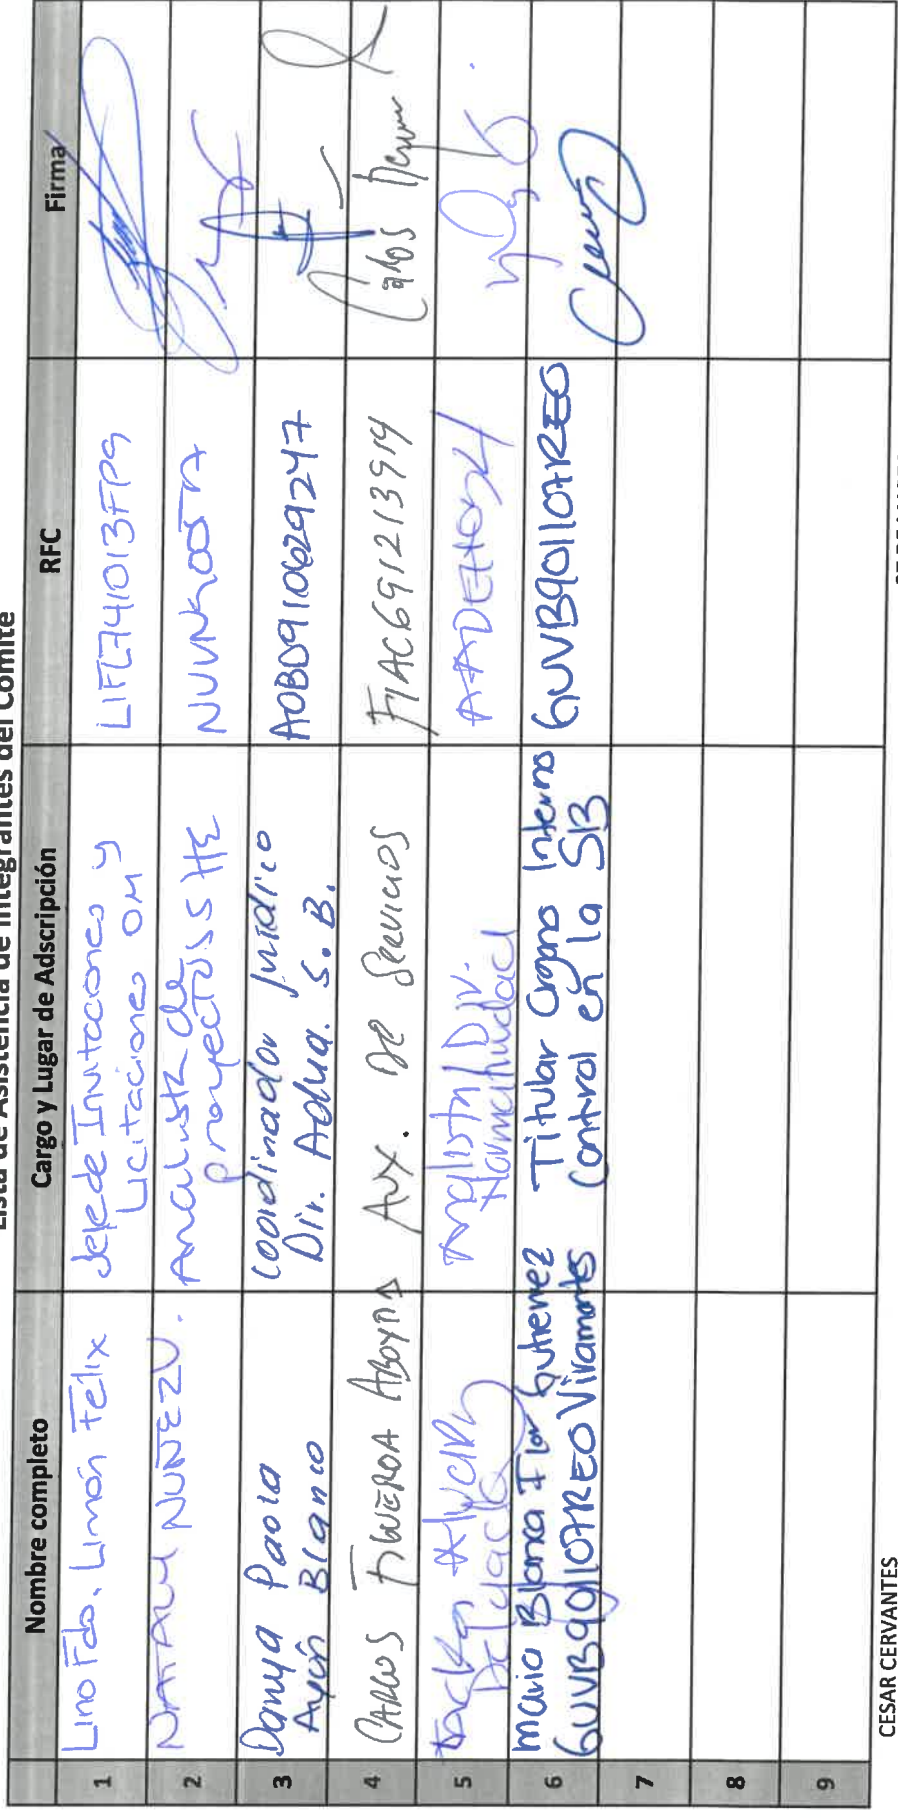 Lista de Asistencia de Integrantes del Comité
Nombre completo Cargo y Lugar de Adscripción RFC Firma
1 Lino Fdo. Limón Felix Jefe de Invitaciones y Licitaciones OM LIFL741013FP9
2 NATALY NUÑEZ V. Analista de Proyectos SHE
3 Danya Paola Ayón Blanco Coordinador Jurídico Dir. Adva. S.B. AOBD910629247
4 CARLOS FIGUEROA ABOYTIA AUX. DE SERVICIOS FIAC691213914 Carlos
5 Analista Div. Normatividad
6 Maria Blanca Flor Gutierrez Viramontes GUVB901107REO Titular Organo Interno Control en la SIB GUVB901107REO
7
8
9
CESAR CERVANTES